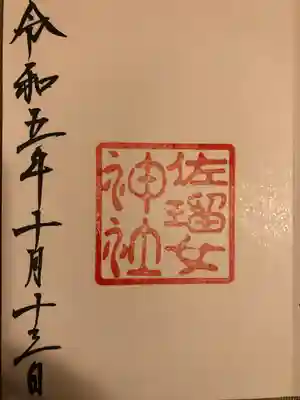 佐瑠女
神社
令和五年十月十三日